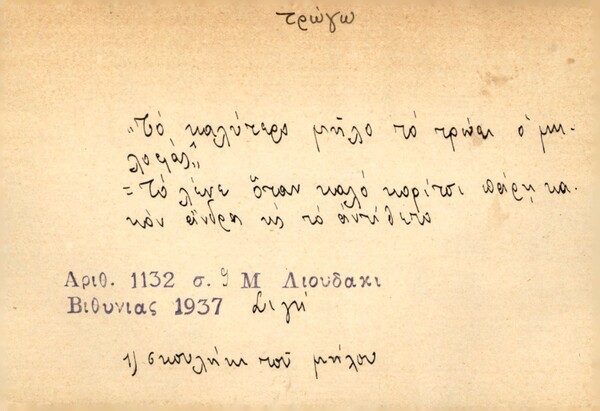 τρώγω
"Τό καλύτερο μῆλο τό τρώει ὁ μη-
λοφάς"
= Τό λένε ὅταν καλό κορίτσι πάρῃ κα-
κόν ἄνδρα κι τό ἀντίθετο
Αριθ. 1132 σ. 9 Μ Λιουδακι
Βιθυνιας 1937 Σιγή
1) σκουλήκι τοῦ μήλου